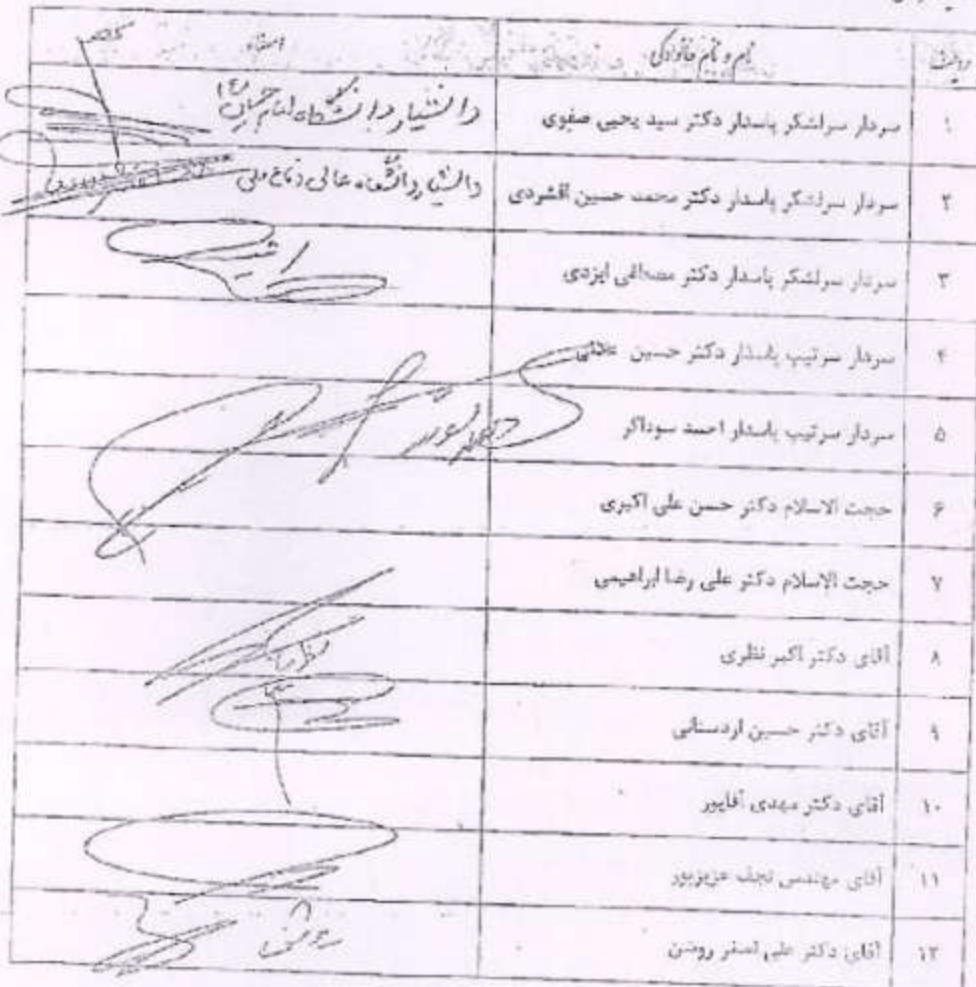 ردیف نام و نام خانوادگی امضاء
۱ سردار سرلشکر پاسدار دکتر سید یحیی صفوی دانشیار دانشگاه امام حسین (ع)
۲ سردار سرلشکر پاسدار دکتر محمد حسین افشردی دانشیار دانشگاه عالی دفاع ملی
۳ سردار سرلشکر پاسدار دکتر مصطفی ایزدی
۴ سردار سرتیپ پاسدار دکتر حسین علائی
۵ سردار سرتیپ پاسدار احمد سوداگر
۶ حجت الاسلام دکتر حسن علی اکبری
۷ حجت الاسلام دکتر علی رضا ابراهیمی
۸ آقای دکتر اکبر نظری
۹ آقای دکتر حسین اردستانی
۱۰ آقای دکتر مهدی آقاپور
۱۱ آقای مهندس نجف عزیزپور
۱۲ آقای دکتر علی اصغر روشن روشن